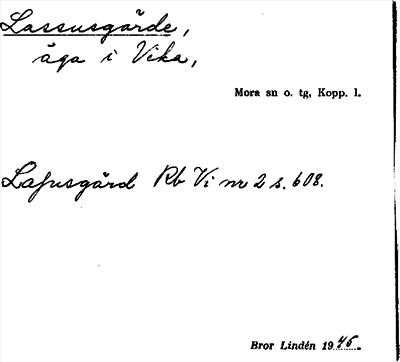 Lassusgärde,
äga i Vika,
Mora sn o. tg, Kopp. l.
Lassusgärd Rb Vi nr 2 s. 608.
Bror Lindén 1946.